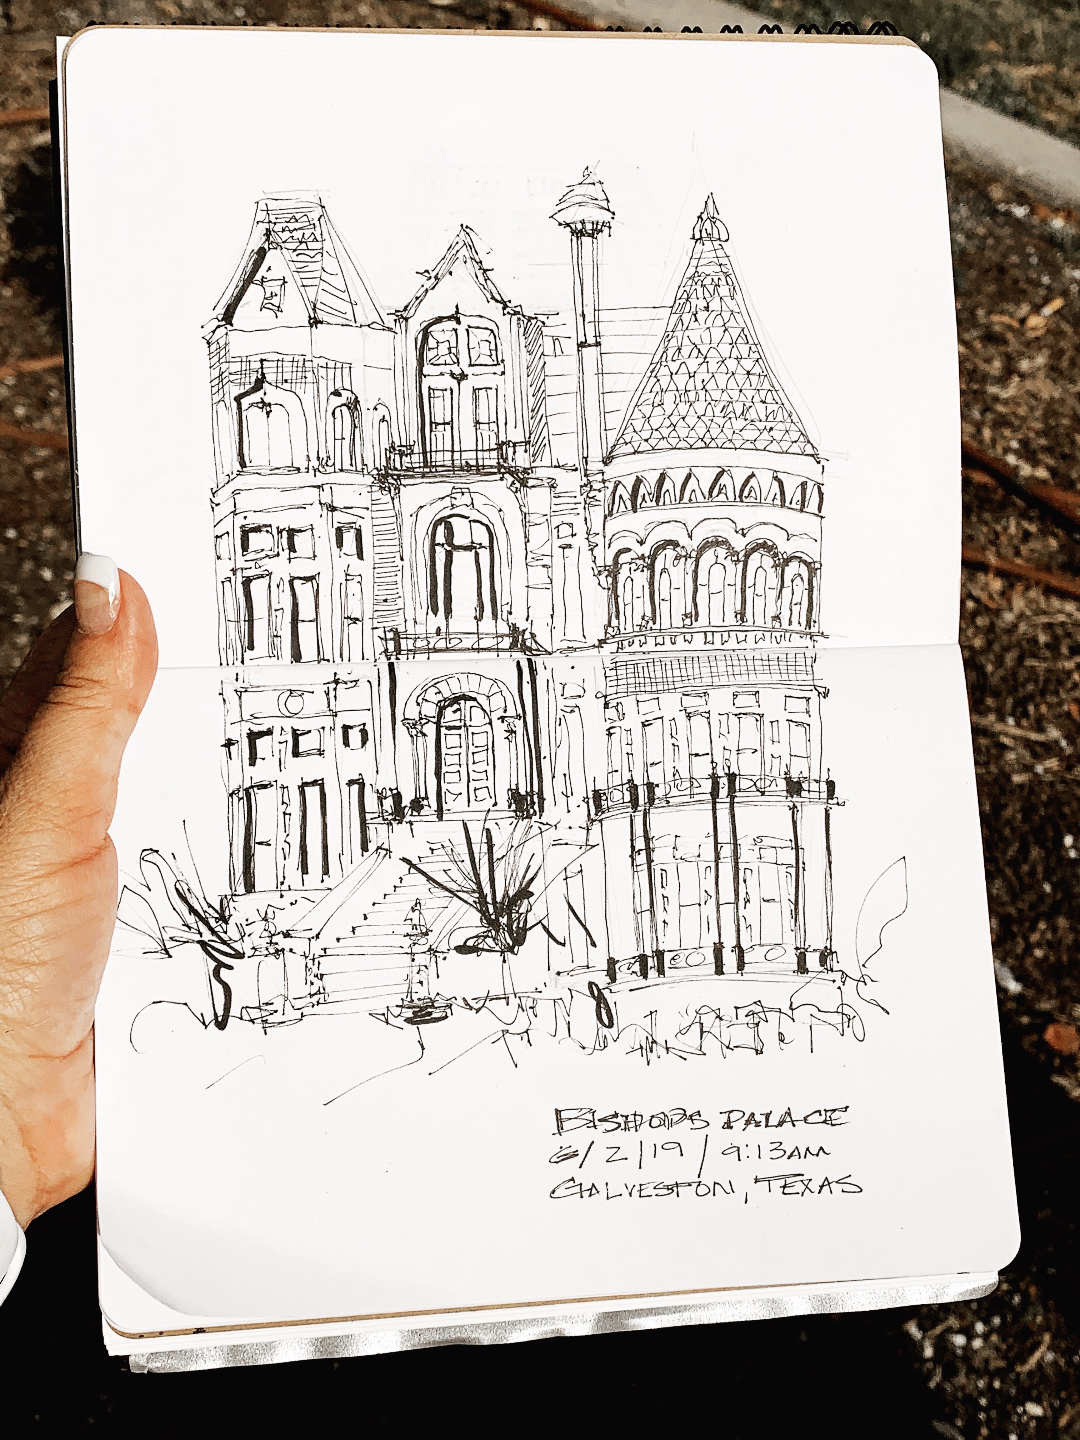 BISHOPS PALACE
6/2/19 / 9:13AM
GALVESTON, TEXAS